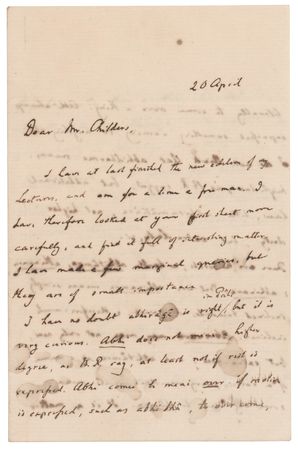 20 April
Dear Mr. Childers,
I have at last finished the new edition of my
Lectures, and am for a time a free man. I
have therefore looked at your first sheet more
carefully, and find it full of interesting matter.
I have made a few marginal queries, but
they are of small importance.
in Pali
I have no doubt is right, but it is
very curious. Abhi does not mean, higher
degree, as I say, at least not if root is
expressed. Abhi comes to mean over, if motion
is expressed, such as abhi bhû, to over come,